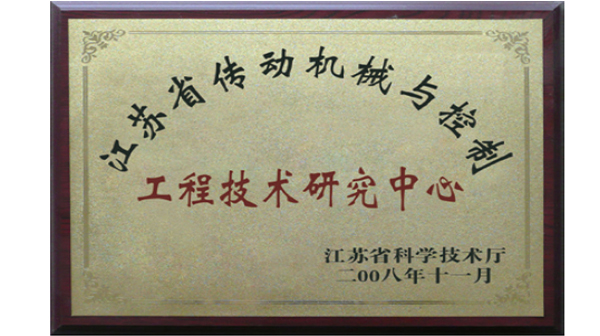 江苏省传动机械与控制
工程技术研究中心
江苏省科学技术厅
二00八年十一月